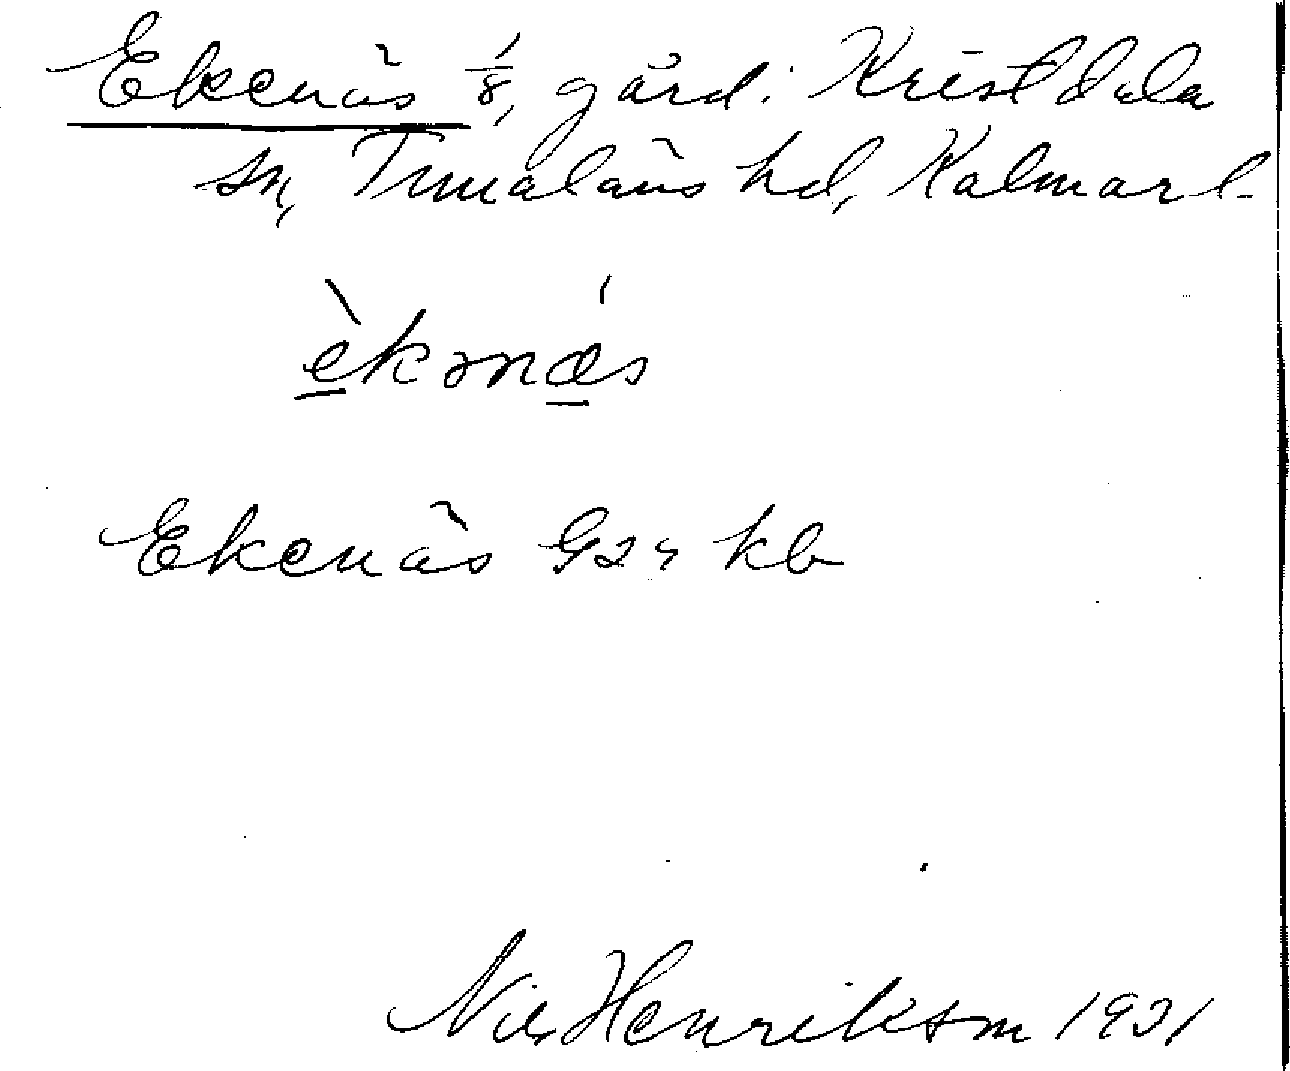 Ekenäs 1/8, gård i Kristdala
sn, Tunaläns hd, Kalmar l.
èkənǽs
Ekenäs Gz4 kb
Nils Henriksson 1931